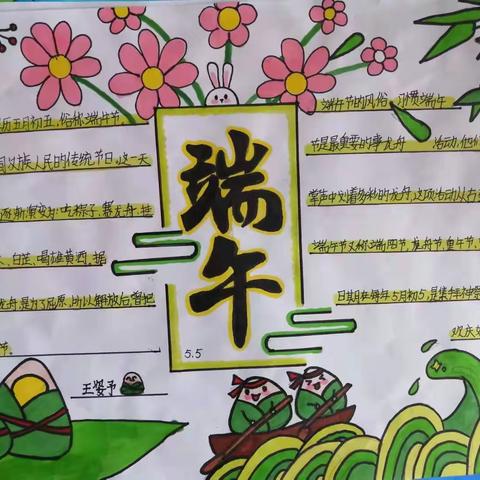 历五月初五,俗称端午节,
国汉族人民的传统节日,这一天
逐渐演变为:吃粽子,赛龙舟,挂
、白芷、喝雄黄酒,据
龙舟,是为了屈原,所以
节。
王姿予
端午
5.5
端午节的风俗、习惯端午
节是最重要的事龙舟 活动,他们
掌声中划着多彩的龙舟,这项活动从古
端午节又称端四节,龙舟节,重午节,
日期在每年5月初5,是集拜神
欢庆